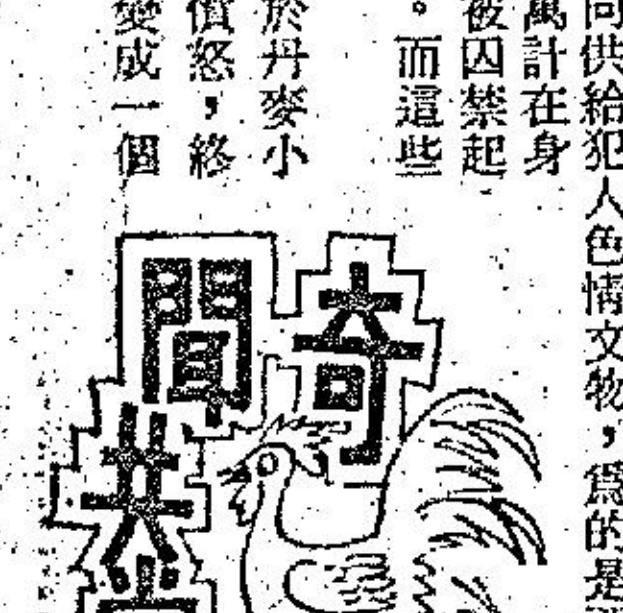 供給犯人色情文物，爲的是
萬計在身
被囚禁起
。而這些
於丹麥小
憤怒，終
變成一個
奇聞共